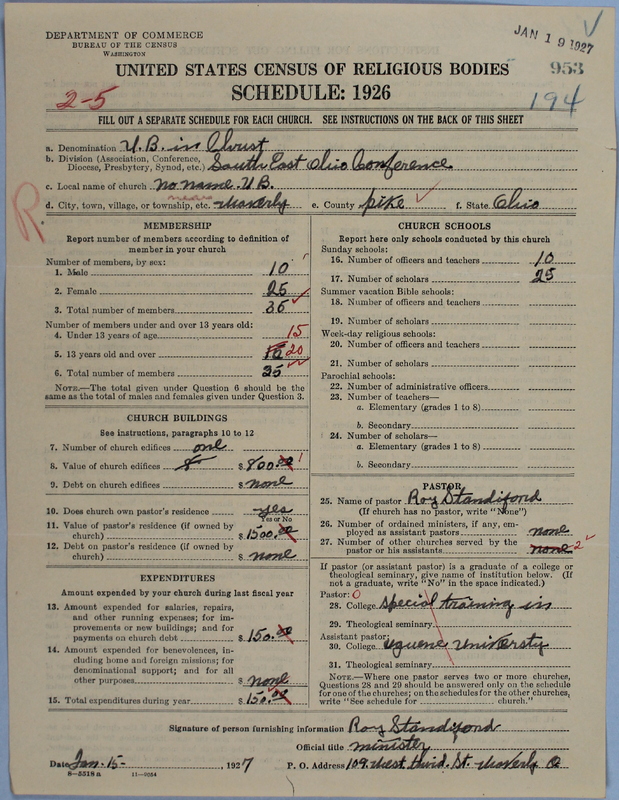 DEPARTMENT OF COMMERCE
BUREAU OF THE CENSUS
WASHINGTON
JAN 19 1927
UNITED STATES CENSUS OF RELIGIOUS BODIES
953
SCHEDULE: 1926
2-5
194
FILL OUT A SEPARATE SCHEDULE FOR EACH CHURCH. SEE INSTRUCTIONS ON THE BACK OF THIS SHEET
a. Denomination U.B. in Christ
b. Division (Association, Conference, Diocese, Presbytery, Synod, etc.) South East Ohio Conference
c. Local name of church no name U.B.
R
d. City, town, village, or township, etc. near Waverly e. County pike f. State Ohio
MEMBERSHIP
Report number of members according to definition of member in your church
Number of members, by sex:
1. Male 10
2. Female 25
3. Total number of members 35
Number of members under and over 13 years old:
4. Under 13 years of age 15
5. 13 years old and over 20
6. Total number of members 35
NOTE.—The total given under Question 6 should be the same as the total of males and females given under Question 3.
CHURCH BUILDINGS
See instructions, paragraphs 10 to 12
7. Number of church edifices one
8. Value of church edifices $ 800.00
9. Debt on church edifices $ none
10. Does church own pastor's residence yes
Yes or No
11. Value of pastor's residence (if owned by church) $ 1500.00
12. Debt on pastor's residence (if owned by church) $ none
EXPENDITURES
Amount expended by your church during last fiscal year
13. Amount expended for salaries, repairs, and other running expenses; for improvements or new buildings; and for payments on church debt $ 150.00
14. Amount expended for benevolences, including home and foreign missions; for denominational support; and for all other purposes $ none
15. Total expenditures during year $ 150.00
CHURCH SCHOOLS
Report here only schools conducted by this church
Sunday schools:
16. Number of officers and teachers 10
17. Number of scholars 25
Summer vacation Bible schools:
18. Number of officers and teachers
19. Number of scholars
Week-day religious schools:
20. Number of officers and teachers
21. Number of scholars
Parochial schools:
22. Number of administrative officers
23. Number of teachers—
a. Elementary (grades 1 to 8)
b. Secondary
24. Number of scholars—
a. Elementary (grades 1 to 8)
b. Secondary
PASTOR
25. Name of pastor Roy Standiford
(If church has no pastor, write "None")
26. Number of ordained ministers, if any, employed as assistant pastors none
27. Number of other churches served by the pastor or his assistants none 2
If pastor (or assistant pastor) is a graduate of a college or theological seminary, give name of institution below. (If not a graduate, write "No" in the space indicated.)
Pastor: 0
28. College special training in
29. Theological seminary
Assistant pastor:
30. College Uguene University
31. Theological seminary
NOTE.—Where one pastor serves two or more churches, Questions 28 and 29 should be answered only on the schedule for one of the churches; on the schedules for the other churches, write "See schedule for church."
Signature of person furnishing information Roy Standiford
Official title minister
Date Jan. 15 , 1927 P. O. Address 109 West third. St. Waverly O
8—5518 a 11—9054